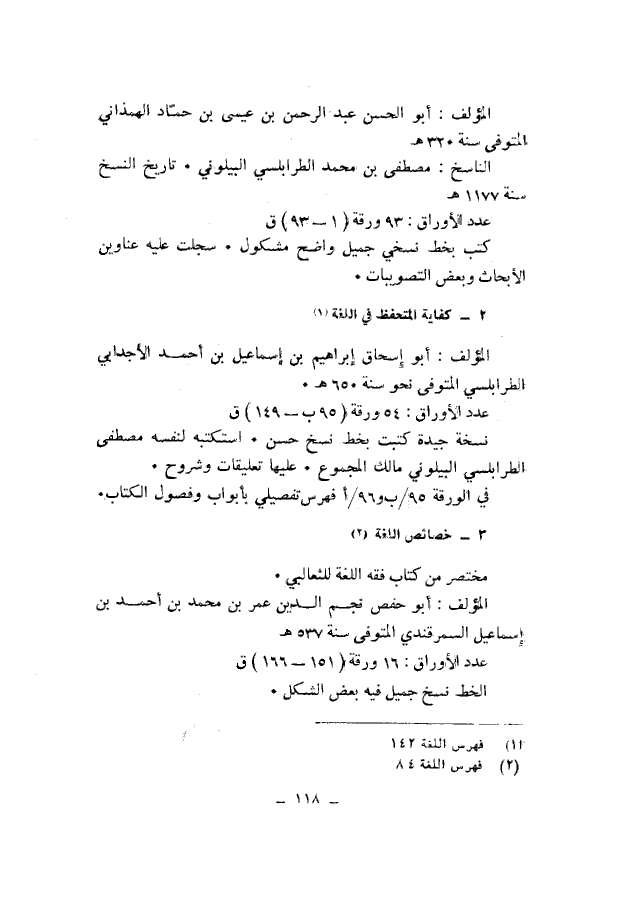 المؤلف : أبو الحسن عبد الرحمن بن عيسى بن حمّاد الهمذاني
المتوفى سنة ٣٢٠ هـ
الناسخ : مصطفى بن محمد الطرابلسي البيلوني ٠ تاريخ النسخ
سنة ١١٧٧ هـ
عدد الأوراق : ٩٣ ورقة ( ١ – ٩٣ ) ق
كتب بخط نسخي جميل واضح مشكول ٠ سجلت عليه عناوين
الأبحاث وبعض التصويبات ٠
٢ – كفاية المتحفظ في اللغة (١)
المؤلف : أبو إسحاق إبراهيم بن إسماعيل بن أحمد الأجدابي
الطرابلسي المتوفى نحو سنة ٦٥٠ هـ ٠
عدد الأوراق : ٥٤ ورقة ( ٩٥ ب – ١٤٩ ) ق
نسخة جيدة كتبت بخط نسخ حسن ٠ استكتبه لنفسه مصطفى
الطرابلسي البيلوني مالك المجموع ٠ عليها تعليقات وشروح ٠
في الورقة ٩٥/ب و٩٦/أ فهرس تفصيلي بأبواب وفصول الكتاب٠
٣ – خصائص اللغة (٢)
مختصر من كتاب فقه اللغة للثعالبي ٠
المؤلف : أبو حفص نجم الدين عمر بن محمد بن أحمد بن
إسماعيل السمرقندي المتوفى سنة ٥٣٧ هـ
عدد الأوراق : ١٦ ورقة ( ١٥١ – ١٦٦ ) ق
الخط نسخ جميل فيه بعض الشكل ٠
(١) فهرس اللغة ١٤٢
(٢) فهرس اللغة ٨٤
– ١١٨ –